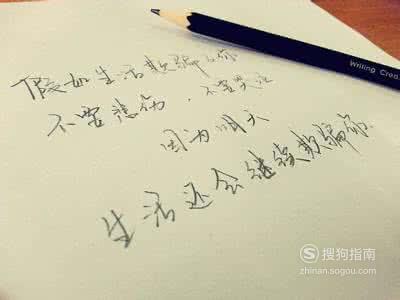 假如生活欺骗了你
不要悲伤，不要哭泣
因为明天
生活还会继续欺骗你。
Writing Crea
搜狗指南
zhinan.sogou.com